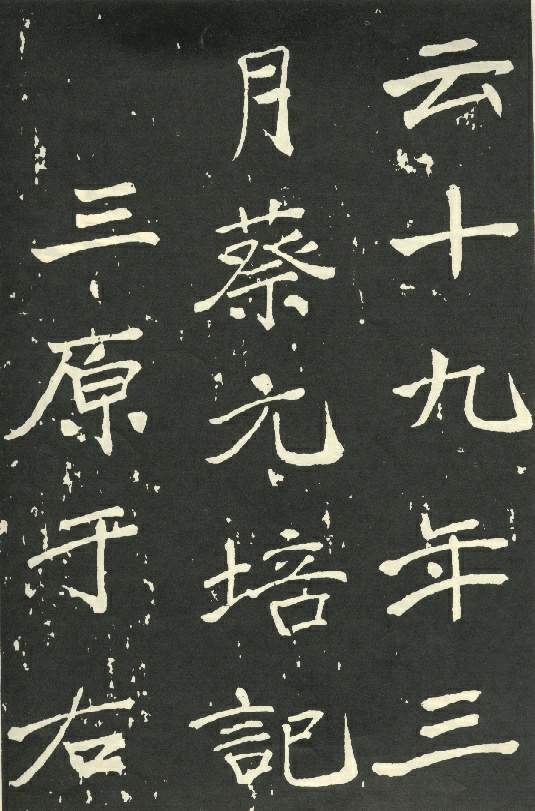 云十九年三
月蔡元培記
三原于右